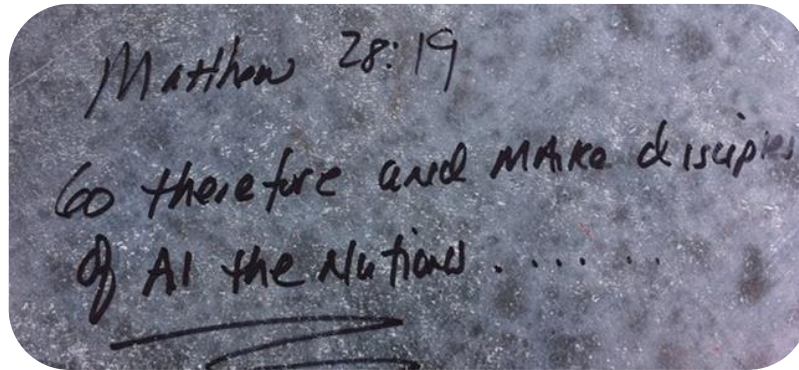 Matthew 28:19
Go therefore and make disciples
of Al the Nations . . . . . . .